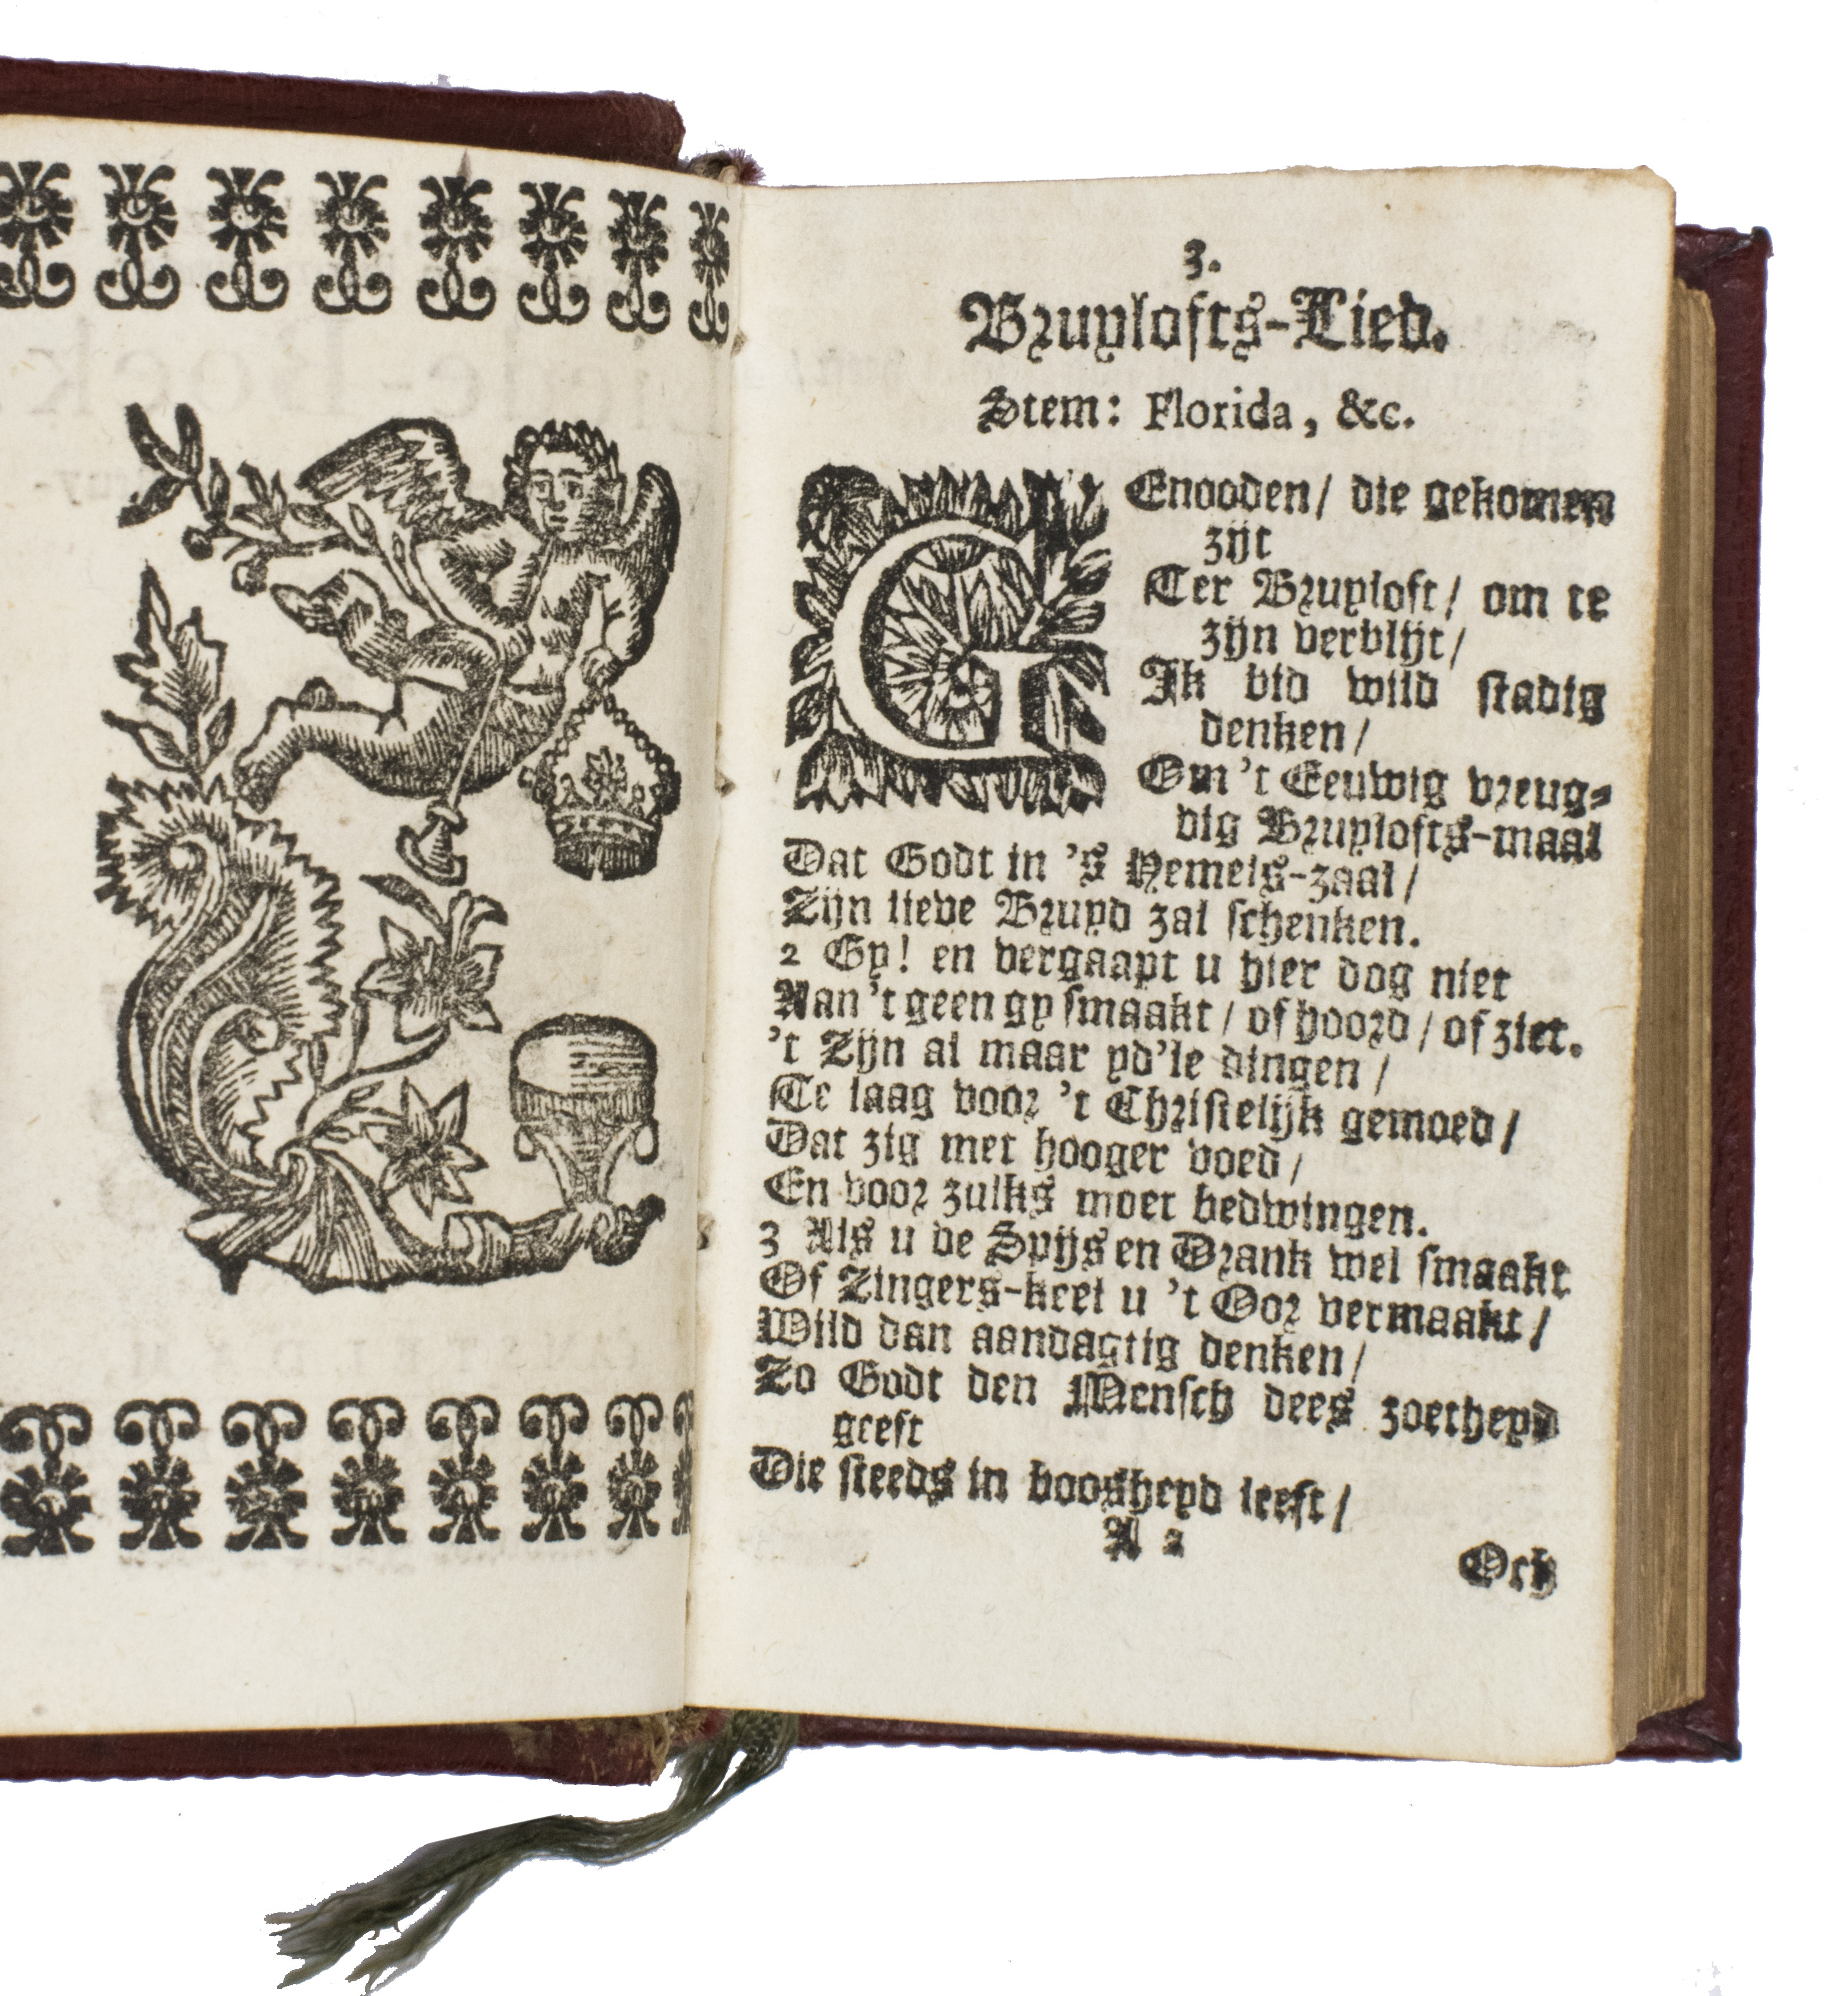 3.
Bruylofts-Lied.
Stem: Florida, &c.
GEnooden/ die gekomen
zijt
Ter Bruyloft/ om te
zijn verblijt/
Ik bid wild stadig
denken/
Om 't Eeuwig vreug-
dig Bruylofts-maal
Dat Godt in 's Hemels-zaal/
Zijn lieve Bruyd zal schenken.
2 Gy! en vergaapt u hier dog niet
Aan 't geen gy smaakt/ of hoord/ of ziet.
't Zijn al maar yd'le dingen/
Te laag voor 't Christelijk gemoed/
Dat zig met hooger voed/
En voor zulks moet bedwingen.
3 Als u de Spijs en Drank wel smaakt
Of Zingers-keel u 't Oor vermaakt/
Wild dan aandagtig denken/
Zo Godt den Mensch dees zoetheyd
geeft
Die steeds in boosheyd leeft/
A 2
Och